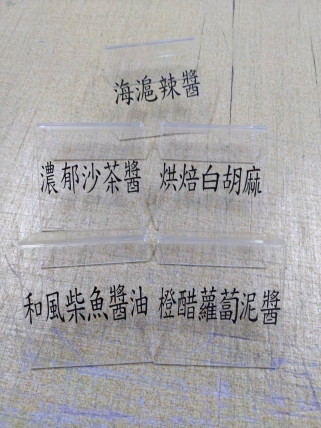 海滬辣醬
濃郁沙茶醬
烘焙白胡麻
和風柴魚醬油
橙醋蘿蔔泥醬